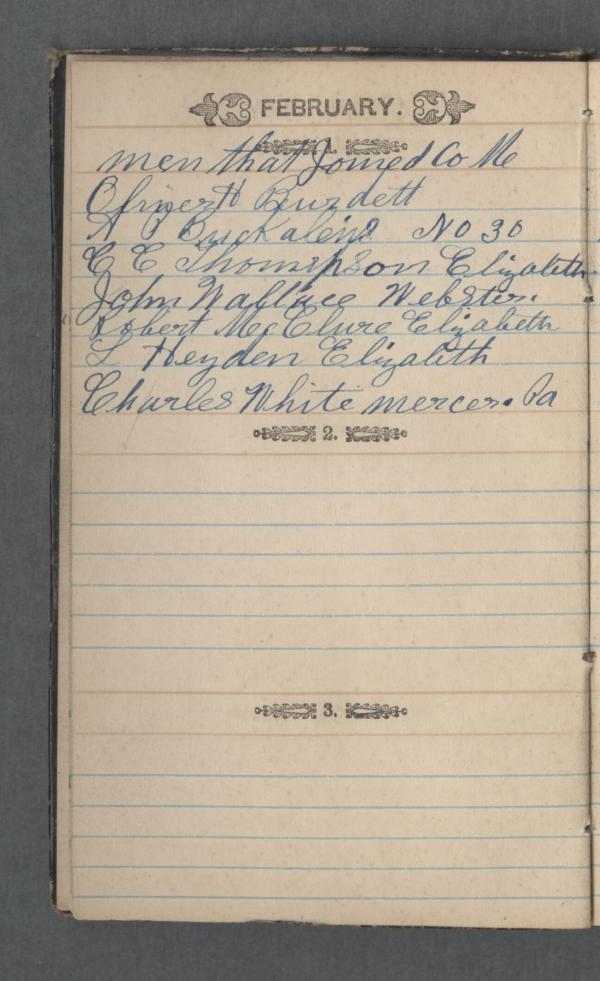 FEBRUARY.
1.
men that Joined Co M
Oliver H Burdett
A J Buckalew No 30
E E Thompson Elizabeth
John Wallace Webster.
Robert Mc Clure Elizabeth
L Heyden Elizabeth
Charles White mercer. Pa
2.
3.